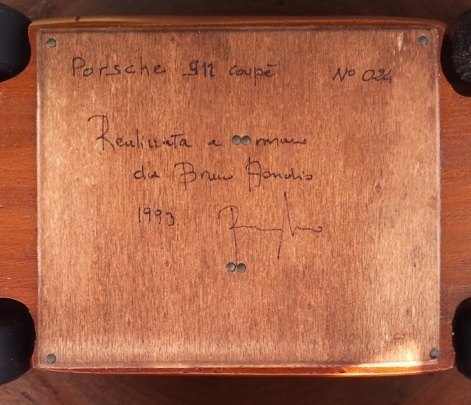 Porsche 911 coupé N° 024
Realizzata a mano
da Bruno
1993